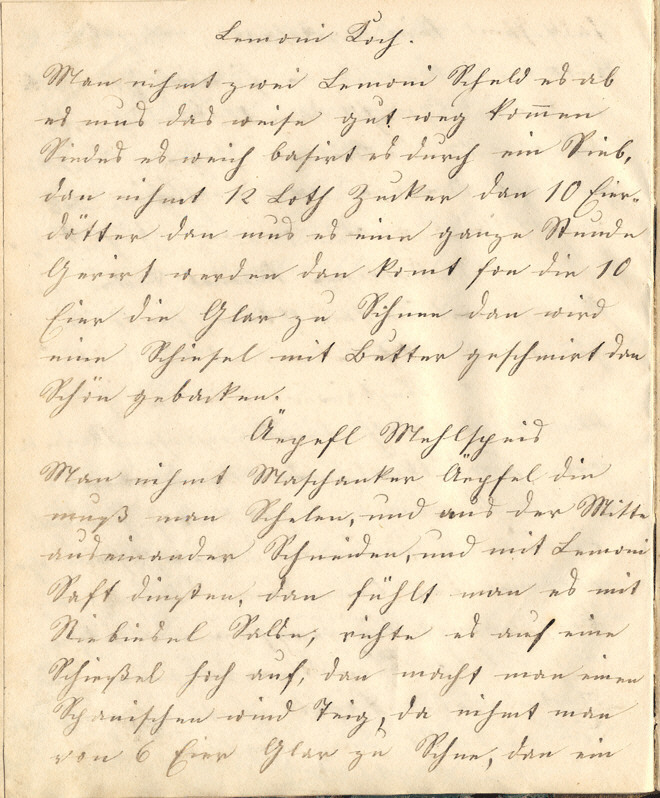 Lemoni Koch.
Man nihmt zwei Lemoni Scheld es ab
es mus das weise gut weg kom̅en
Siedes es weich basirt es durch ein Sieb,
dan nihmt 12 Loth Zucker dan 10 Eier-
dötter dan mus es eine ganze Stunde
Gerirt werden dan komt fon die 10
Eier die Glar zu Schnee dan wird
eine Schiesel mit Butter geschmirt dan
Schön gebacken.
Äepefl Mehlspeis
Man nihmt Maschanker Äepfel die
muß man Schelen, und aus der Mitte
auseinander Schneiden, und mit Lemoni
Saft dinsten, dan fühlt man es mit
Riebiesel Salse, richte es auf eine
Schießel hoch auf, dan macht man einen
Spanischen wind Teig, da nihmt man
von 6 Eier Glar zu Schne, dan ein